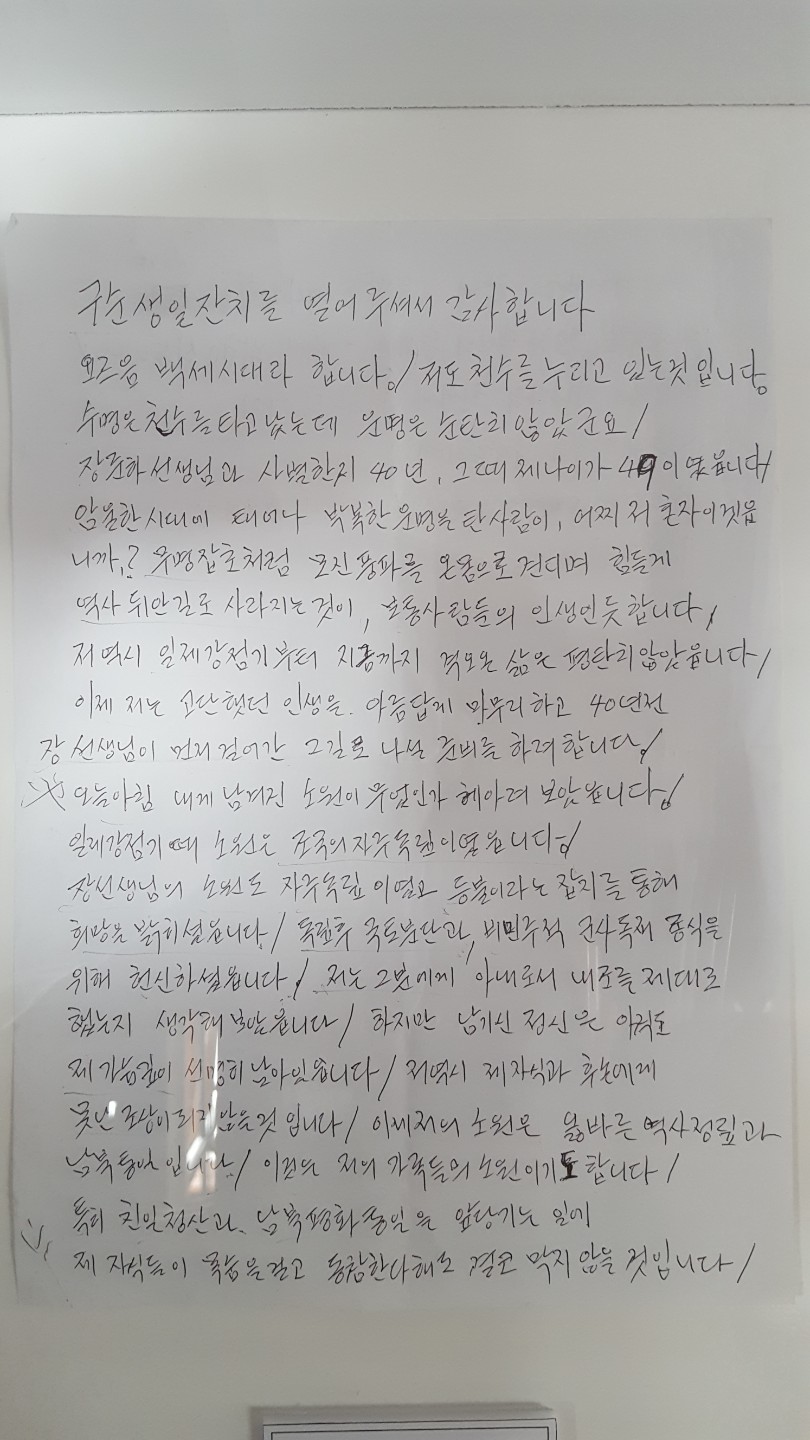 구순 생일잔치를 열어 주셔서 감사합니다
요즈음 백세시대라 합니다./ 저도 천수를 누리고 있는것 입니다.
수명은 천수를 타고 났는데 운명은 순탄치 않았군요/
장준하 선생님과 사별한지 40년, 그때 제나이가 49이였읍니다/
암울한 시대에 태어나 박복한 운명을 탄사람이, 어찌 저 혼자이겟읍
니까,? 무명잡초처럼 모진 풍파를 온몸으로 견디며 힘들게
역사 뒤안길로 사라지는것이, 보통사람들의 인생인듯합니다,
저 역시 일제강점기부터 지금까지 격으온 삶은 평탄치않았읍니다/
이제 저는 고단했던 인생을. 아름답게 마무리하고 40년전
장 선생님이 먼저 걸어간 그길로 나설 준비를 하려합니다/
오늘아침 내게 남겨진 소원이 무엇인가 헤아려 보았읍니다/
일제강점기 때 소원은 조국의 자주독립이였읍니다/
장선생님의 소원도 자주독립 이였고 등불이라는 잡지를 통해
희망을 밝히셨읍니다/ 독립후 국토분단과, 비민주적 군사독재 종식을
위해 헌신하셨읍니다/ 저는 그분에게 아내로서 내조를 제대로
했는지 생각해 보았읍니다/ 하지만 남기신 정신은 아직도
제 가슴깊이 선명히 남아있읍니다/ 저역시 제 자식과 후손에게
못난 조상이 되지않을것 입니다/ 이제저의 소원은 옳바른 역사정립과
남북통일 입니다/ 이것은 저의 가족들의 소원이기도 합니다/
특히 친일청산과 남북평화통일을 앞당기는 일에
제 자식들이 목숨을걸고 동참한다해도 결코 막지 않을 것입니다/